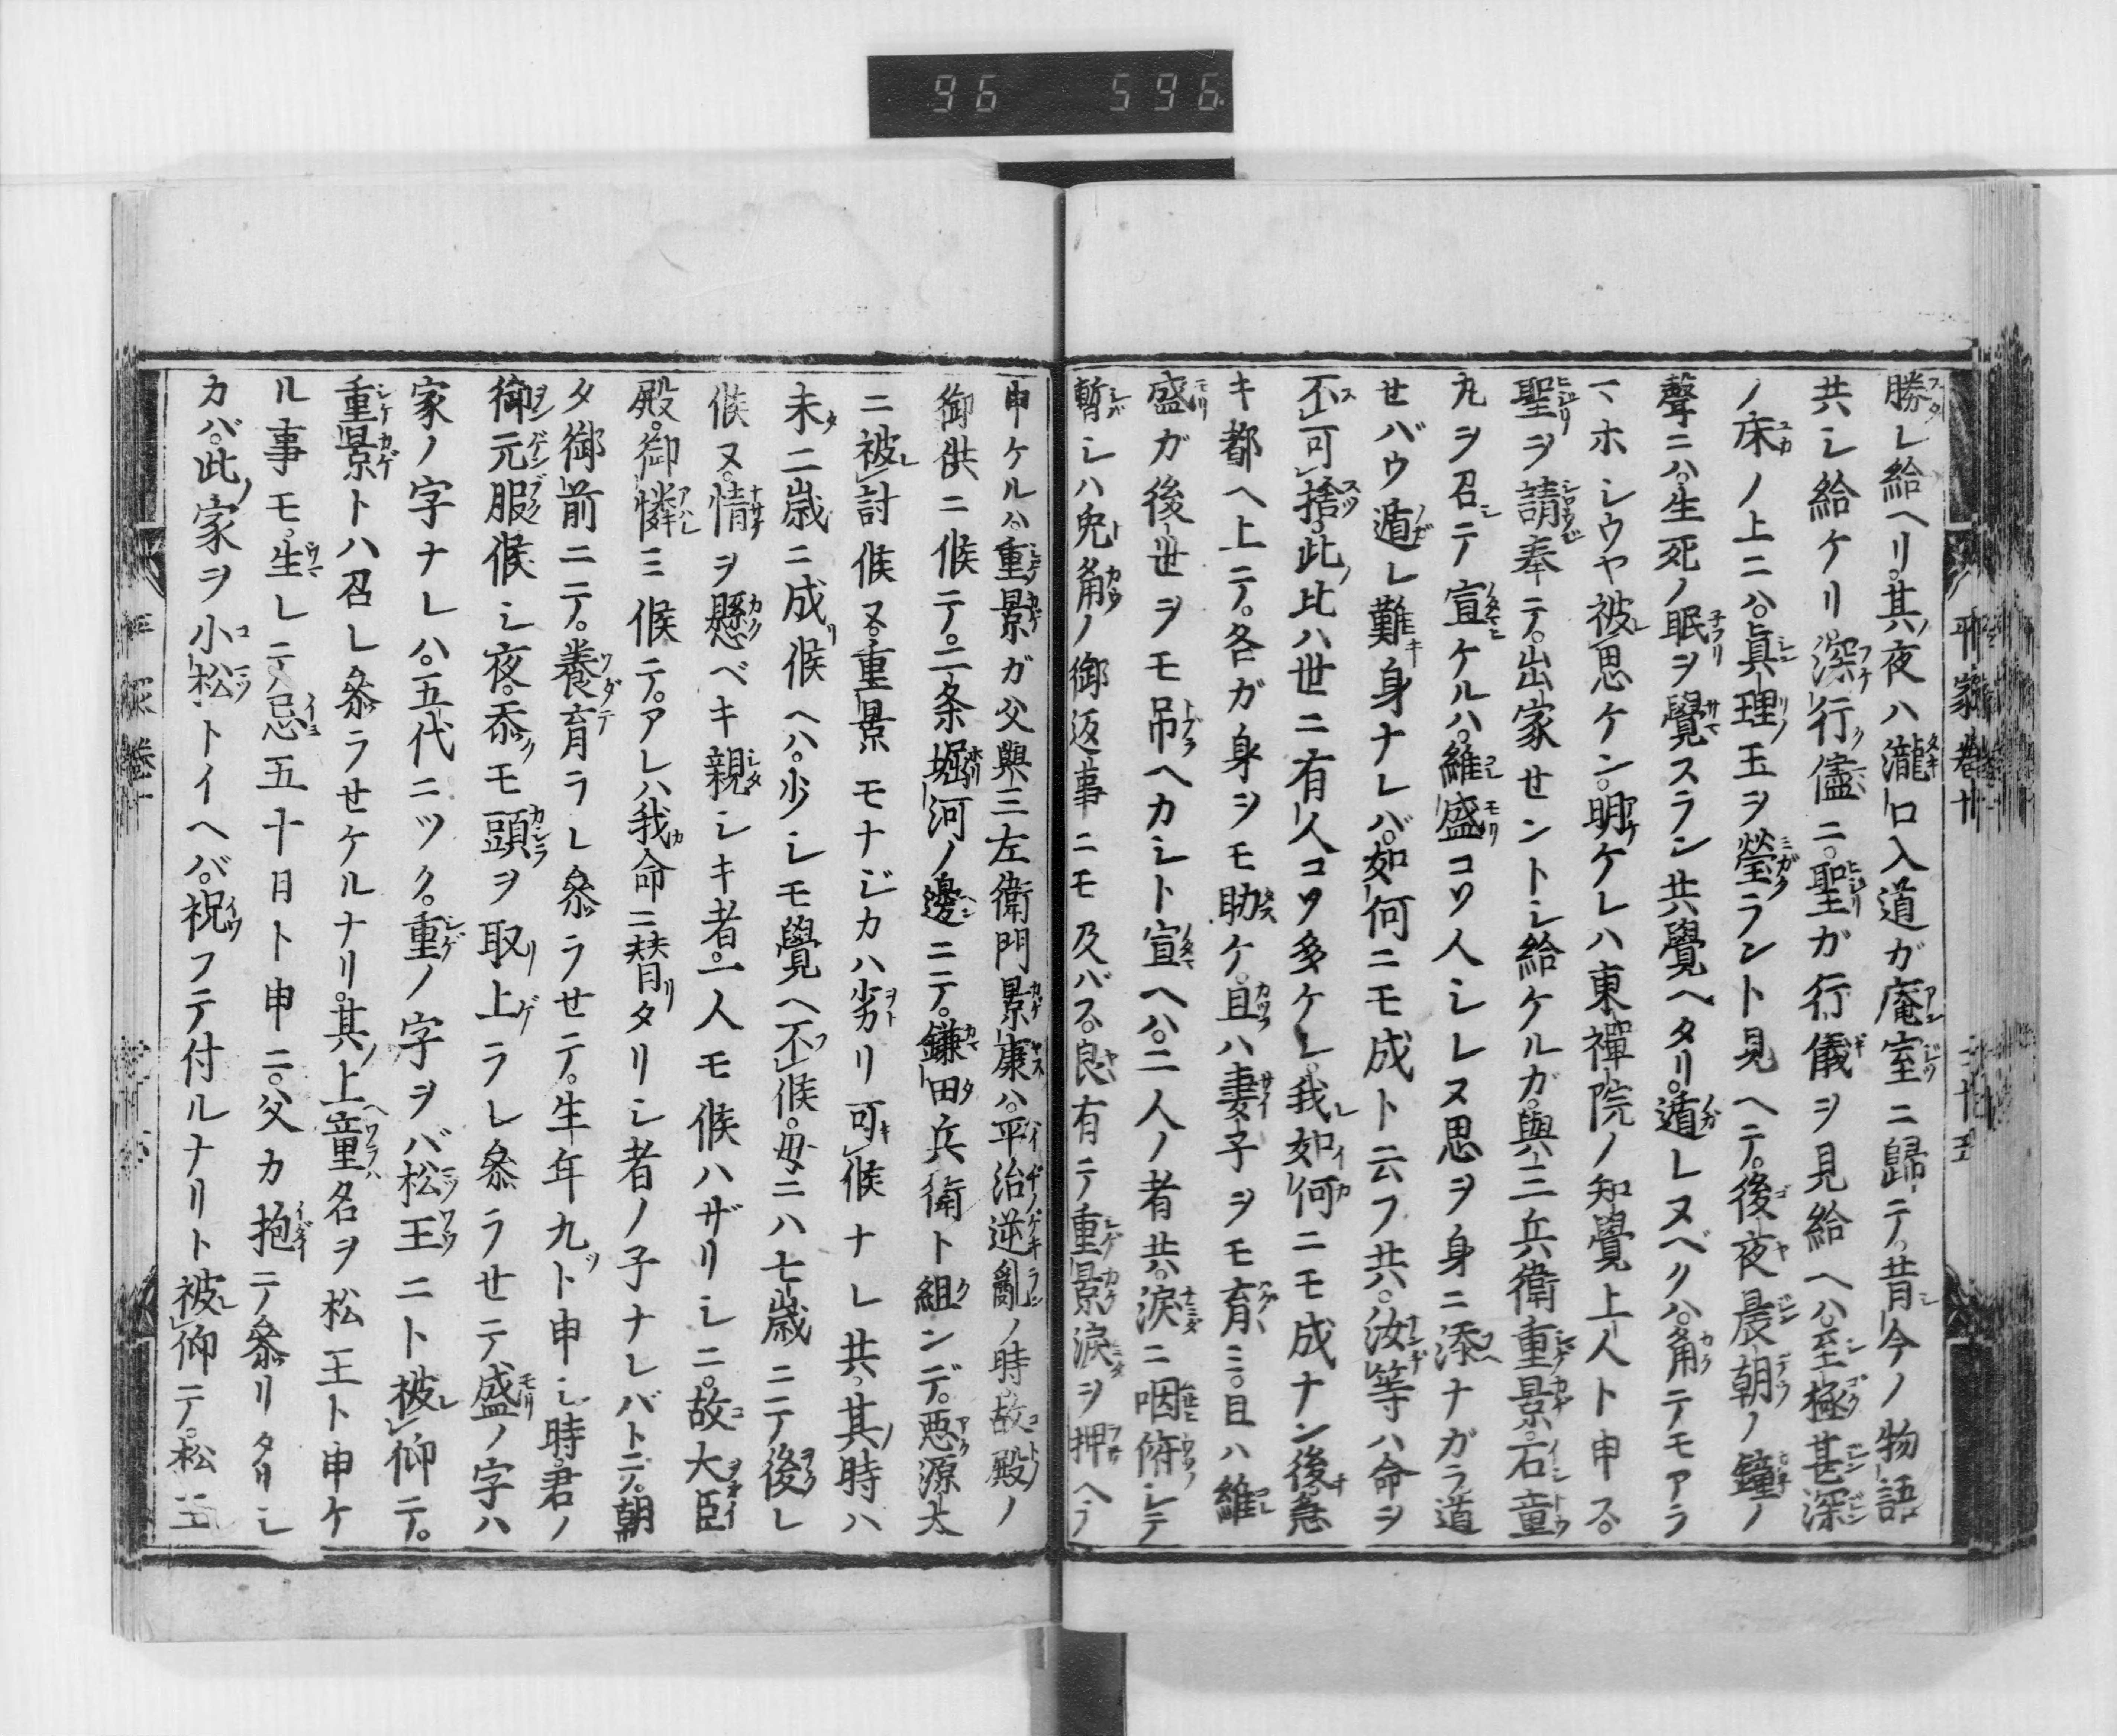 96 596
平家巻十 二十五
勝レ給ヘリ。其夜ハ瀧口入道ガ庵室ニ歸テ。昔今ノ物語
共シ給ケリ深行儘ニ。聖ガ行儀ヲ見給ヘハ。至極甚深
ノ床ノ上ニハ。眞理ノ玉ヲ瑩ラント見ヘテ。後夜晨朝ノ鐘ノ
聲ニハ。生死ノ眠ヲ覺スラン共覺ヘタリ。遁レヌベクハ。角テモアラ
マホシウヤ被思ケン。明ケレハ東禪院ノ知覺上人ト申ス。
聖ヲ請奉テ。出家セントシ給ケルガ。與三兵衛重景。石童
丸ヲ召テ宣ケルハ。維盛コソ人シレヌ思ヲ身ニ添ナガラ道
セバウ遁レ難身ナレバ。如何ニモ成ト云フ共。汝等ハ命ヲ
不可捨。此比ハ世ニ有人コソ多ケレ。我如何ニモ成ナン後。急
キ都ヘ上テ。各ガ身ヲモ助ケ。且ハ妻子ヲモ育ミ。且ハ維
盛ガ後世ヲモ吊ヘカシト宣ヘハ。二人ノ者共。涙ニ咽俯シテ
暫シハ兎角ノ御返事ニモ及バス。良有テ重景涙ヲ押ヘテ
申ケルハ。重景ガ父與三左衛門景康ハ。平治逆亂ノ時故殿ノ
御供ニ候テ。二条堀河ノ邊ニテ。鎌田兵衛ト組ンデ。悪源太
ニ被討候ヌ。重景モナジカハ劣リ可候ナレ共。其時ハ
未二歳ニ成候ヘハ。少シモ覺ヘ不候。母ニハ七歳ニテ後レ
候ヌ。情ヲ懸ベキ親シキ者。一人モ候ハザリシニ。故大臣
殿。御憐ミ候テ。アレハ我命ニ替タリシ者ノ子ナレバトテ。朝
タ御前ニテ。養育ラレ參ラセテ。生年九ト申シ時。君ノ
御元服候シ夜。忝モ頭ヲ取上ラレ參ラセテ盛ノ字ハ
家ノ字ナレハ。五代ニツク。重ノ字ヲバ松王ニト被仰テ。
重景トハ召レ參ラセケルナリ。其上童名ヲ松王ト申ケ
ル事モ。生レテ忌五十日ト申ニ。父カ抱テ參リタリシ
カバ。此家ヲ小松トイヘバ。祝フテ付ルナリト被仰テ。松王
平家巻